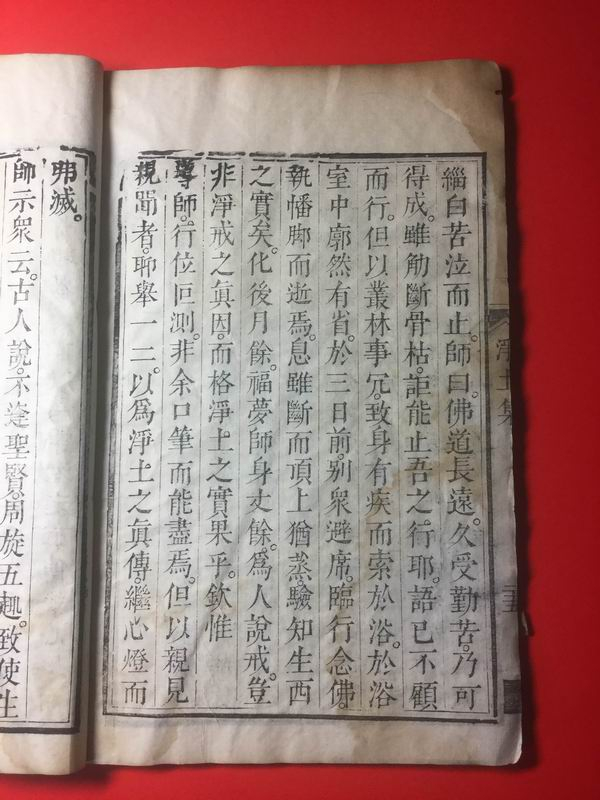 緇白苦泣而止。師曰。佛道長遠。久受勤苦。乃可
得成。雖觔斷骨枯。詎能止吾之行耶。語已不顧
而行。但以叢林事冗。致身有疾而索於浴。於浴
室中廓然有省。於三日前。别衆避席。臨行念佛。
執幡脚而逝焉。息雖斷而頂上猶蒸。驗知生西
之實矣。化後月餘。福夢師身丈餘。爲人說戒。豈
非淨戒之眞因。而格淨土之實果乎。欽惟
尊師。行位叵測。非余口筆而能盡焉。但以親見
親聞者。聊舉一二。以爲淨土之眞傳。繼心燈而
淨土集
弗滅。
師示衆云。古人說。不逢聖賢。周旋五趣。致使生